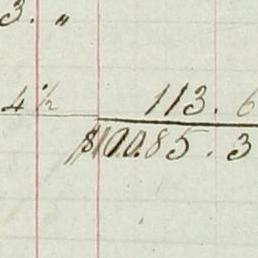 3. "
4 ½ 113. 6
$10085. 3